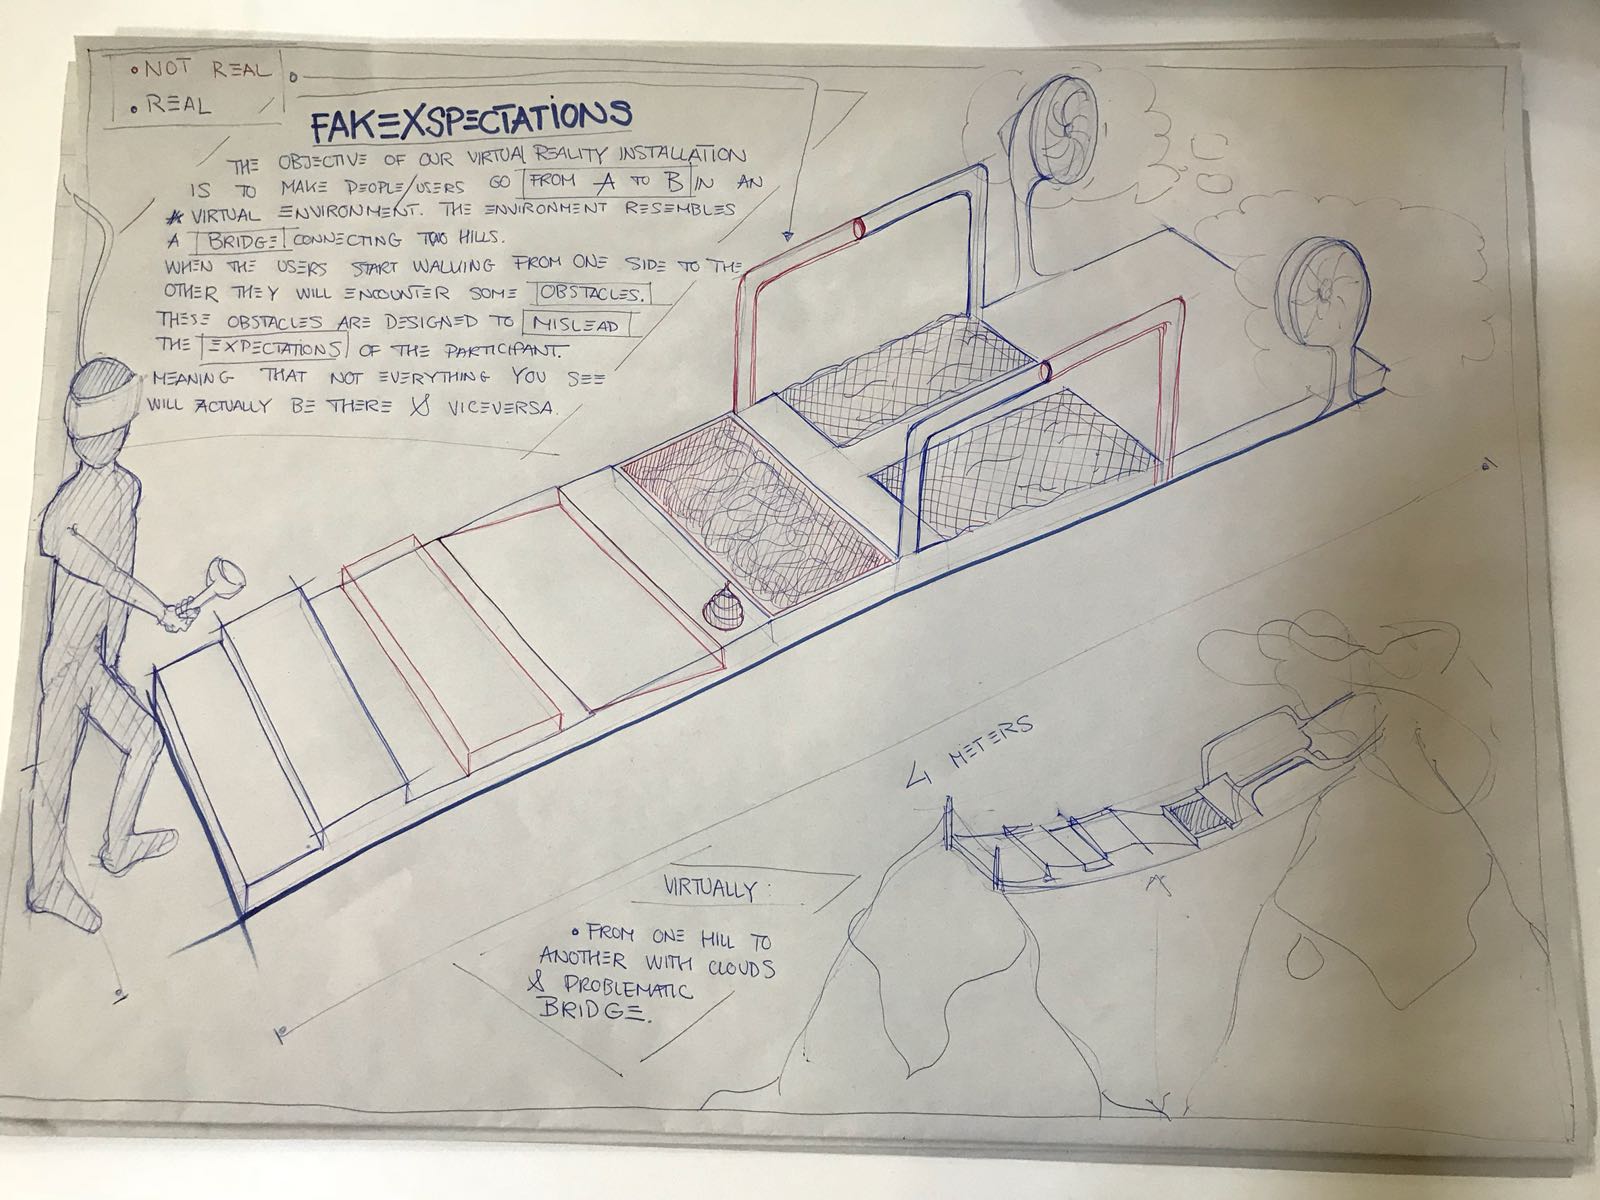 • NOT REAL
• REAL
FAKEXSPECTATIONS
THE OBJECTIVE OF OUR VIRTUAL REALITY INSTALLATION
IS TO MAKE PEOPLE/USERS GO FROM A TO B IN AN
VIRTUAL ENVIRONMENT. THE ENVIRONMENT RESEMBLES
A BRIDGE CONNECTING TWO HILLS.
WHEN THE USERS START WALKING FROM ONE SIDE TO THE
OTHER THEY WILL ENCOUNTER SOME OBSTACLES.
THESE OBSTACLES ARE DESIGNED TO MISLEAD
THE EXPECTATIONS OF THE PARTICIPANT.
MEANING THAT NOT EVERYTHING YOU SEE
WILL ACTUALLY BE THERE & VICEVERSA.
4 METERS
VIRTUALLY:
• FROM ONE HILL TO
ANOTHER WITH CLOUDS
& PROBLEMATIC
BRIDGE.